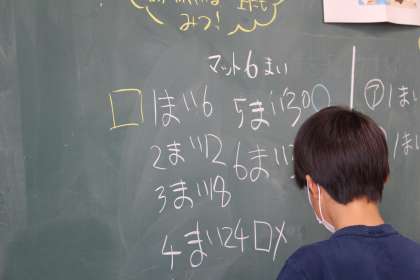 みつ!
マット6まい
□ 1まい6 5まい30○
2まい12 6まい
3まい18
4まい24□×
㋐1まい